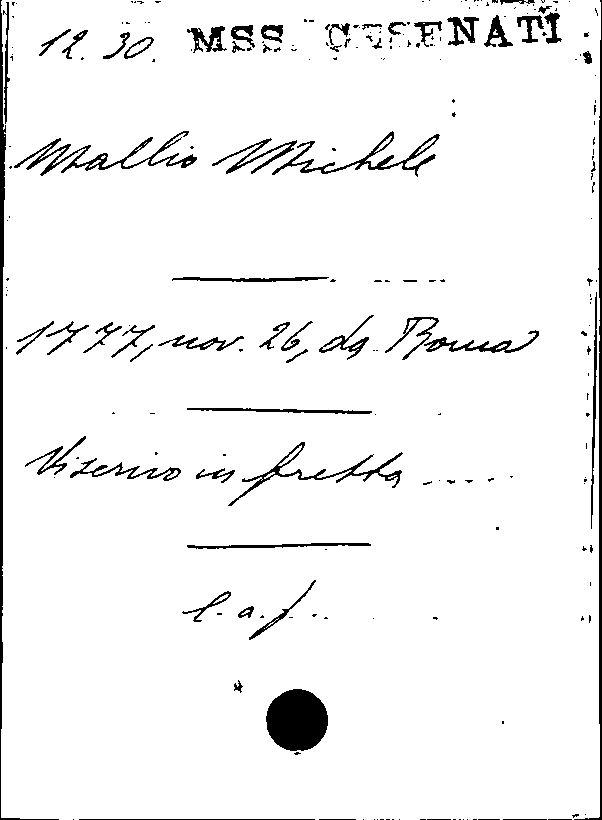 12. 30. MSS. CESENATI
Mallio Michele
1777, nov. 26, da Roma
Vi scrivo in fretta .....
l. a. f. ..